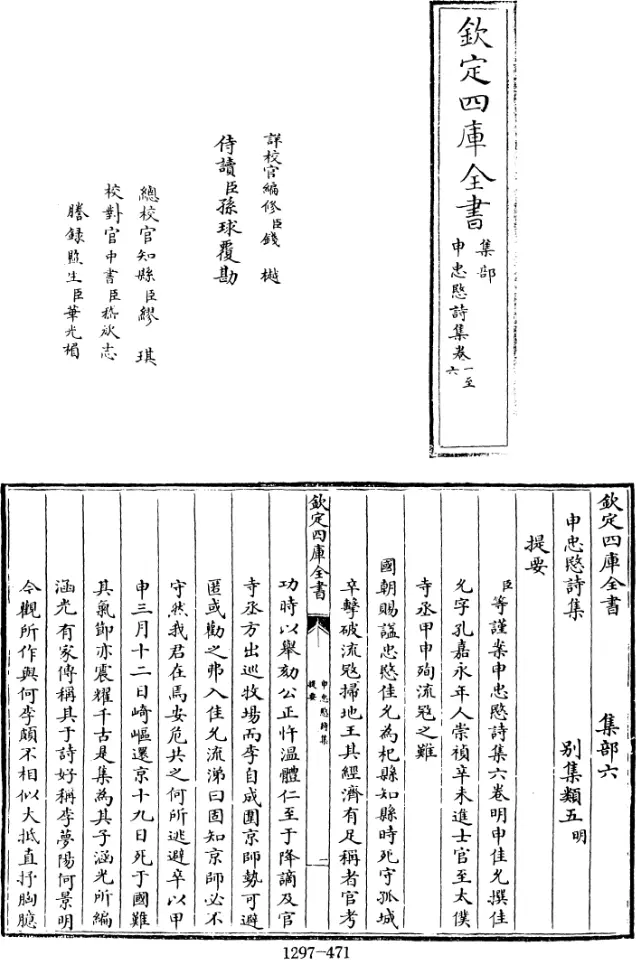 欽定四庫全書
集部
申忠愍詩集卷一至
六
詳校官編修臣錢樾
侍讀臣孫球覆勘
總校官知縣臣繆琪
校對官中書臣嵇承志
謄錄監生臣華光楣
欽定四庫全書 集部六
申忠愍詩集 别集類五明
提要
臣等謹案申忠愍詩集六卷明申佳允撰佳
允字孔嘉永年人崇禎辛未進士官至太僕
寺丞甲申殉流冦之難
國朝賜諡忠愍佳允為杞縣知縣時死守孤城
卒擊破流冦掃地王其經濟有足稱者官考
欽定四庫全書
申忠愍詩集
提要
一
功時以舉劾公正忤温體仁至于降謫及官
寺丞方出巡牧場而李自成圍京師勢可避
匿或勸之弗入佳允流涕曰固知京師必不
守然我君在焉安危共之何所逃避卒以甲
申三月十二日崎嶇還京十九日死于國難
其氣節亦震耀千古是集為其子涵光所編
涵光有家傳稱其于詩好稱李夢陽何景明
今觀所作與何李頗不相似大抵直抒胸臆
1297-471